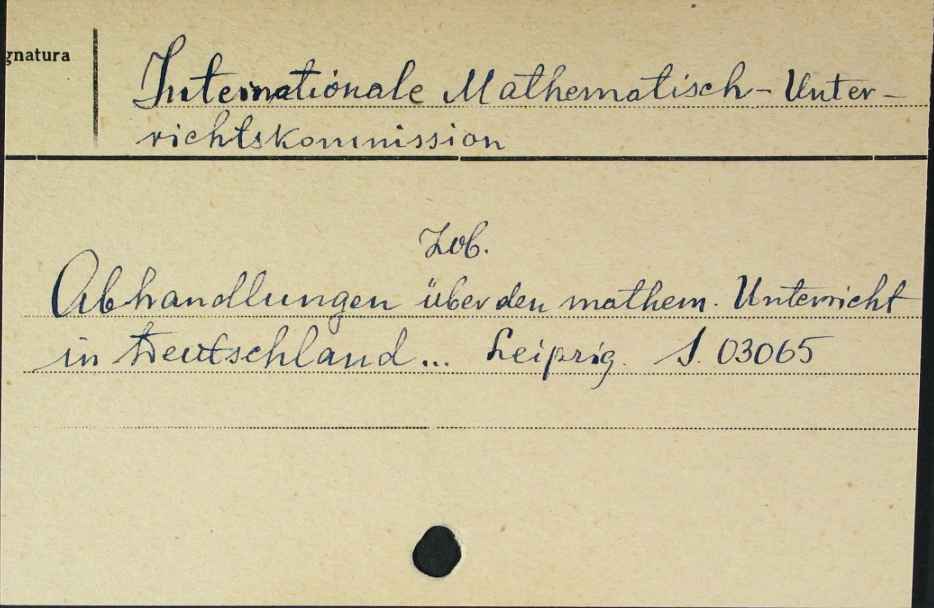 gnatura
Internationale Mathematisch-Unter-
richtskommission
Zob.
Abhandlungen über den mathem. Unterricht
in Deutschland... Leipzig. S. 03065